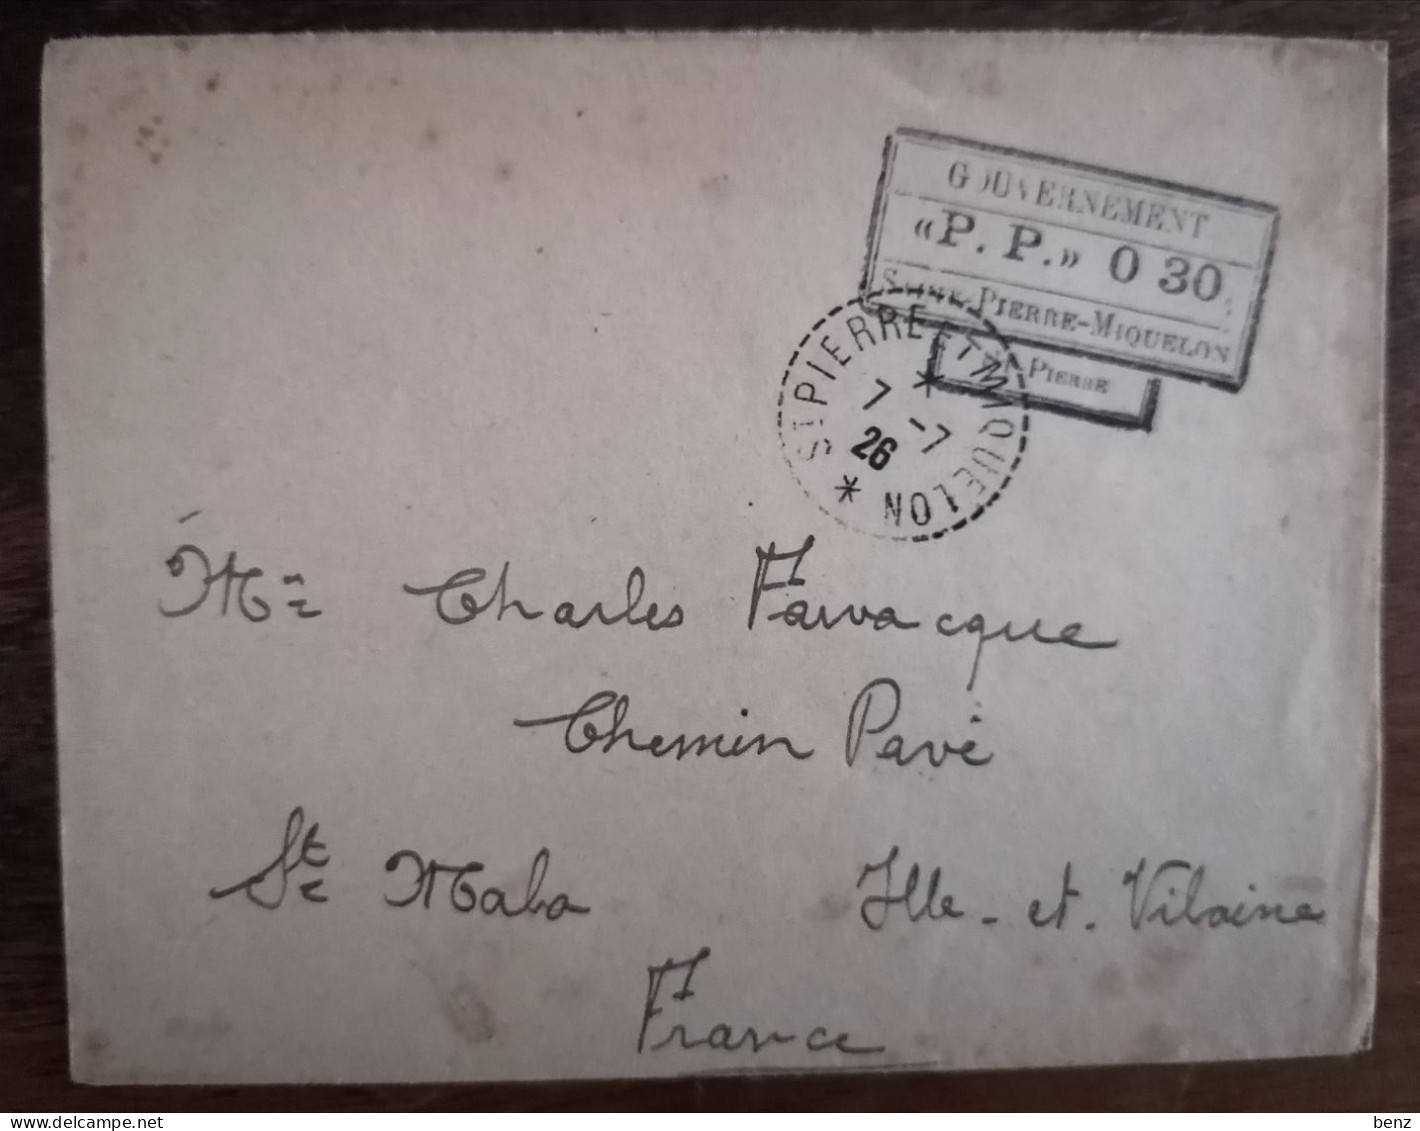 GOUVERNEMENT
«P. P.» 0 30
SAINT-PIERRE-MIQUELON
PIERRE
ST PIERRE ET MIQUELON
7 -7
26
Charles Favvacque
Chemin Pavé
St Malo Ille-et-Vilaine
France
www.delcampe.net
benz